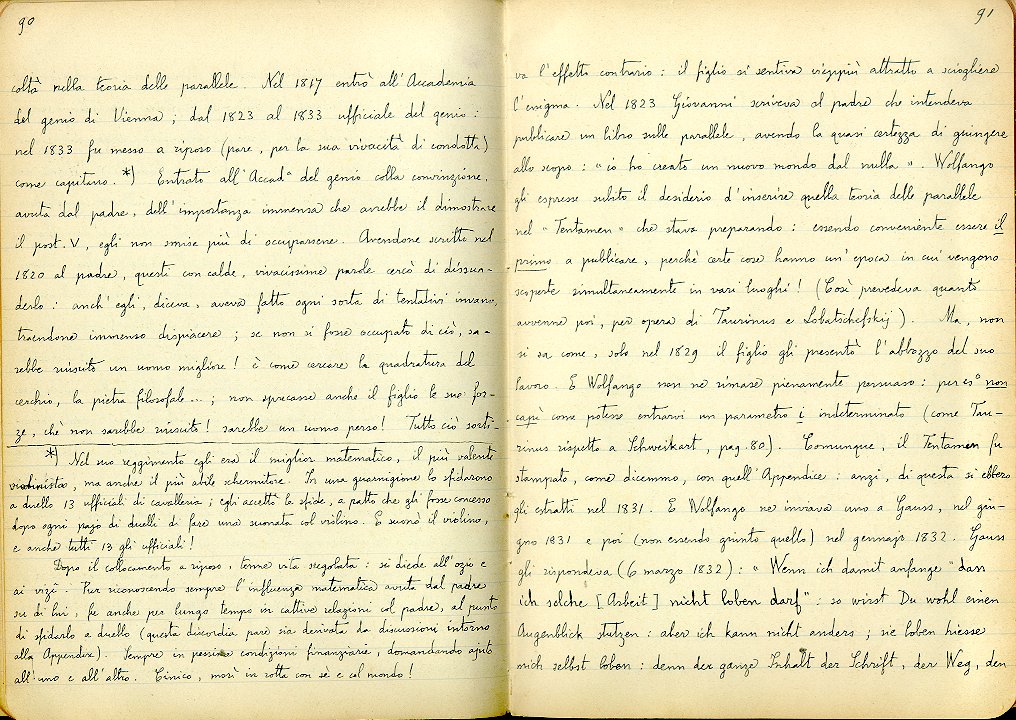 90
coltà nella teoria delle parallele. Nel 1817 entrò all'Accademia
del genio di Vienna; dal 1823 al 1833 ufficiale del genio:
nel 1833 fu messo a riposo (pare, per la sua vivacità di condotta)
come capitano. *) Entrato all'Accadª del genio colla convinzione,
avuta dal padre, dell'importanza immensa che avrebbe il dimostrare
il post. V, egli non smise più di occuparsene. Avendone scritto nel
1820 al padre, questi con calde, vivacissime parole cercò di dissua-
derlo: anch'egli, diceva, aveva fatto ogni sorta di tentativi invano,
traendone immenso dispiacere; se non si fosse occupato di ciò, sa-
rebbe riuscito un uomo migliore! è come cercare la quadratura del
cerchio, la pietra filosofale...; non sprecasse anche il figlio le sue for-
ze, chè non sarebbe riuscito! sarebbe un uomo perso! Tutto ciò sorti-
*) Nel suo reggimento egli era il miglior matematico, il più valente
violinista, ma anche il più abile schermitore. In una guarnigione lo sfidarono
a duello 13 ufficiali di cavalleria; egli accettò la sfida, a patto che gli fosse concesso
dopo ogni pajo di duelli di fare una suonata col violino. E suonò il violino,
e anche tutti 13 gli ufficiali!
Dopo il collocamento a riposo, tenne vita sregolata: si diede all'ozio e
ai vizi. Pur riconoscendo sempre l'influenza matematica avuta dal padre
su di lui, fu anche per lungo tempo in cattive relazioni col padre, al punto
di sfidarlo a duello (questa discordia pare sia derivata da discussioni intorno
alla Appendix). Sempre in pessime condizioni finanziarie, domandando ajuto
all'uno e all'altro. Cinico, morì in rotta con sè e col mondo!
91
va l'effetto contrario: il figlio si sentiva vieppiù attratto a sciogliere
l'enigma. Nel 1823 Giovanni scriveva al padre che intendeva
publicare un libro sulle parallele, avendo la quasi certezza di giungere
allo scopo: "io ho creato un nuovo mondo dal nulla". Wolfango
gli espresse subito il desiderio d'inserire quella teoria delle parallele
nel "Tentamen" che stava preparando: essendo conveniente essere il
primo a publicare, perchè certe cose hanno un'epoca in cui vengono
scoperte simultaneamente in vari luoghi! (Così prevedeva quanto
avvenne poi, per opera di Taurinus e Lobatschefskij). Ma, non
si sa come, solo nel 1829 il figlio gli presentò l'abbozzo del suo
lavoro. E Wolfango non ne rimase pienamente persuaso: per es° non
capì come potesse entrarvi un parametro i indeterminato (come Tau-
rinus rispetto a Schweikart, pag. 80). Comunque, il Tentamen fu
stampato, come dicemmo, con quell'Appendice: anzi, di questa si ebbero
gli estratti nel 1831. E Wolfango ne inviava uno a Gauss, nel giu-
gno 1831 e poi (non essendo giunto quello) nel gennajo 1832. Gauss
gli rispondeva (6 marzo 1832): "Wenn ich damit anfange "dass
ich solche [Arbeit] nicht loben darf": so wirst Du wohl einen
Augenblick stutzen: aber ich kann nicht anders; sie loben hiesse
mich selbst loben: denn der ganze Inhalt der Schrift, der Weg, den